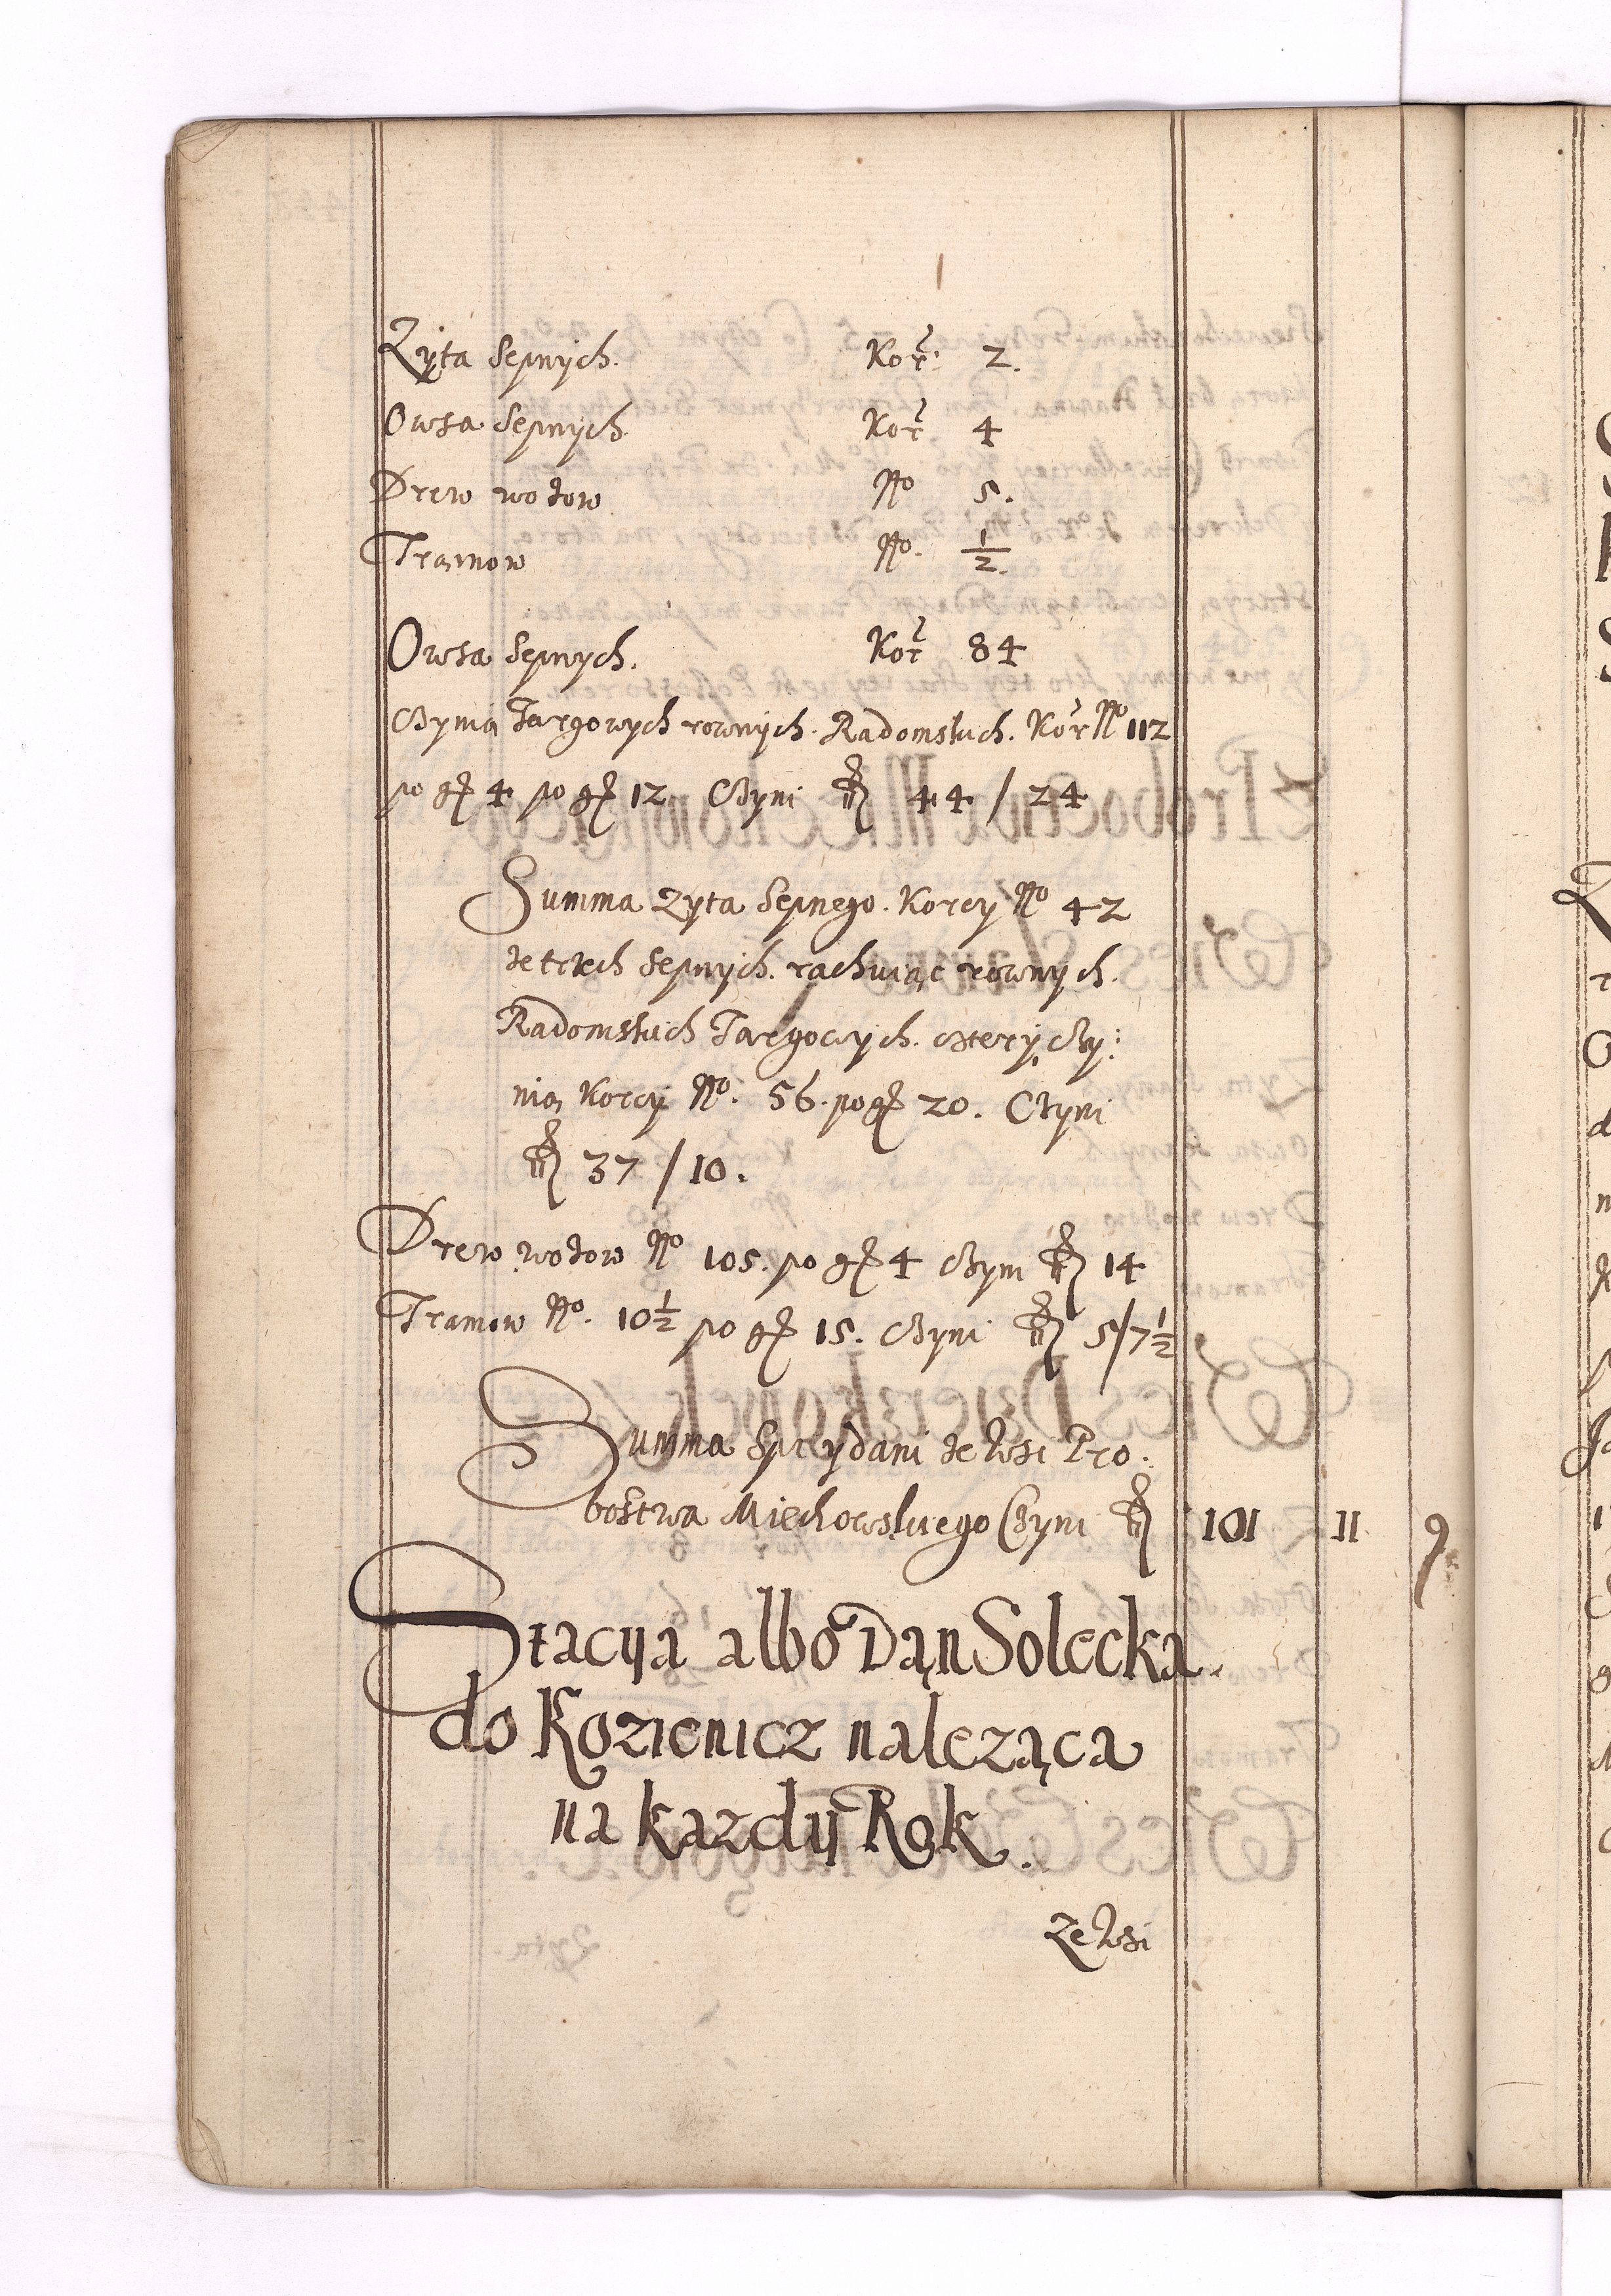 Zyta Sepnych. Kor: 2.
Owsa Sepnych Kor 4
Drew wozow No 5.
Tramow No. 1/2.
Owsa Sepnych. Kor 84
Czynią Targowych rownych. Radomskich. Kor No 112
po gr 4 po gr 12 Czyni fl 44 / 24
Summa Zyta Sepnego. Korcy No 42
Ze trzech Sepnych. rachuiąc rownych.
Radomskich Targowych. cztery czy:
nią Korcy No. 56. po gr 20. Czyni
fl 37 / 10.
Drew wozow No 105. po gr 4 Czyni fl 14
Tramow No. 10 1/2 po gr 15. Czyni fl 5/7 1/2
Summa Sprzydani Ze Wsi Pro:
bostwa Miechowskiego Czyni fl 101 11 9
Stacyia albo Dąn Solecka.
do Kozienicz naleząca
na kazdy Rok.
Ze Wsi